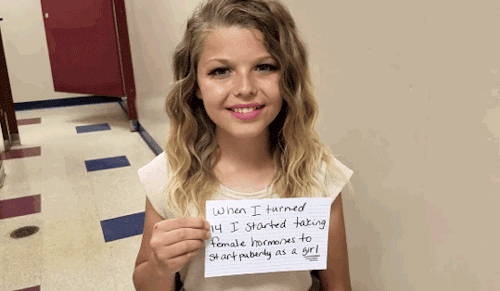 When I turned
14 I started taking
female hormones to
start puberty as a girl